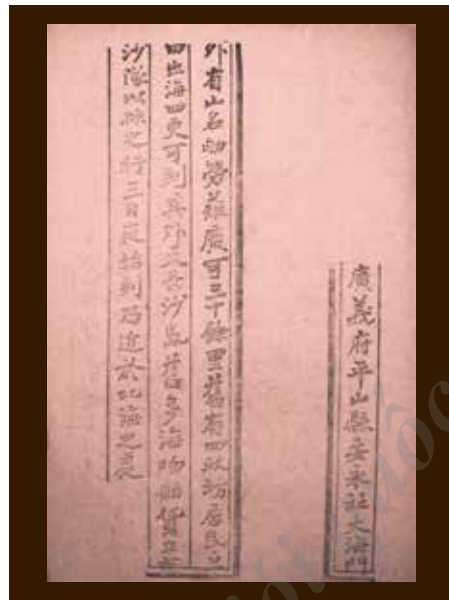 廣義府平山縣安永社大海門
外有山名劬勞廣可三十餘里舊有四政坊居民
田出海四更可到其外大長沙島舊多海物舶貨立
沙隊以採之行三日夜始到乃近於北海之處